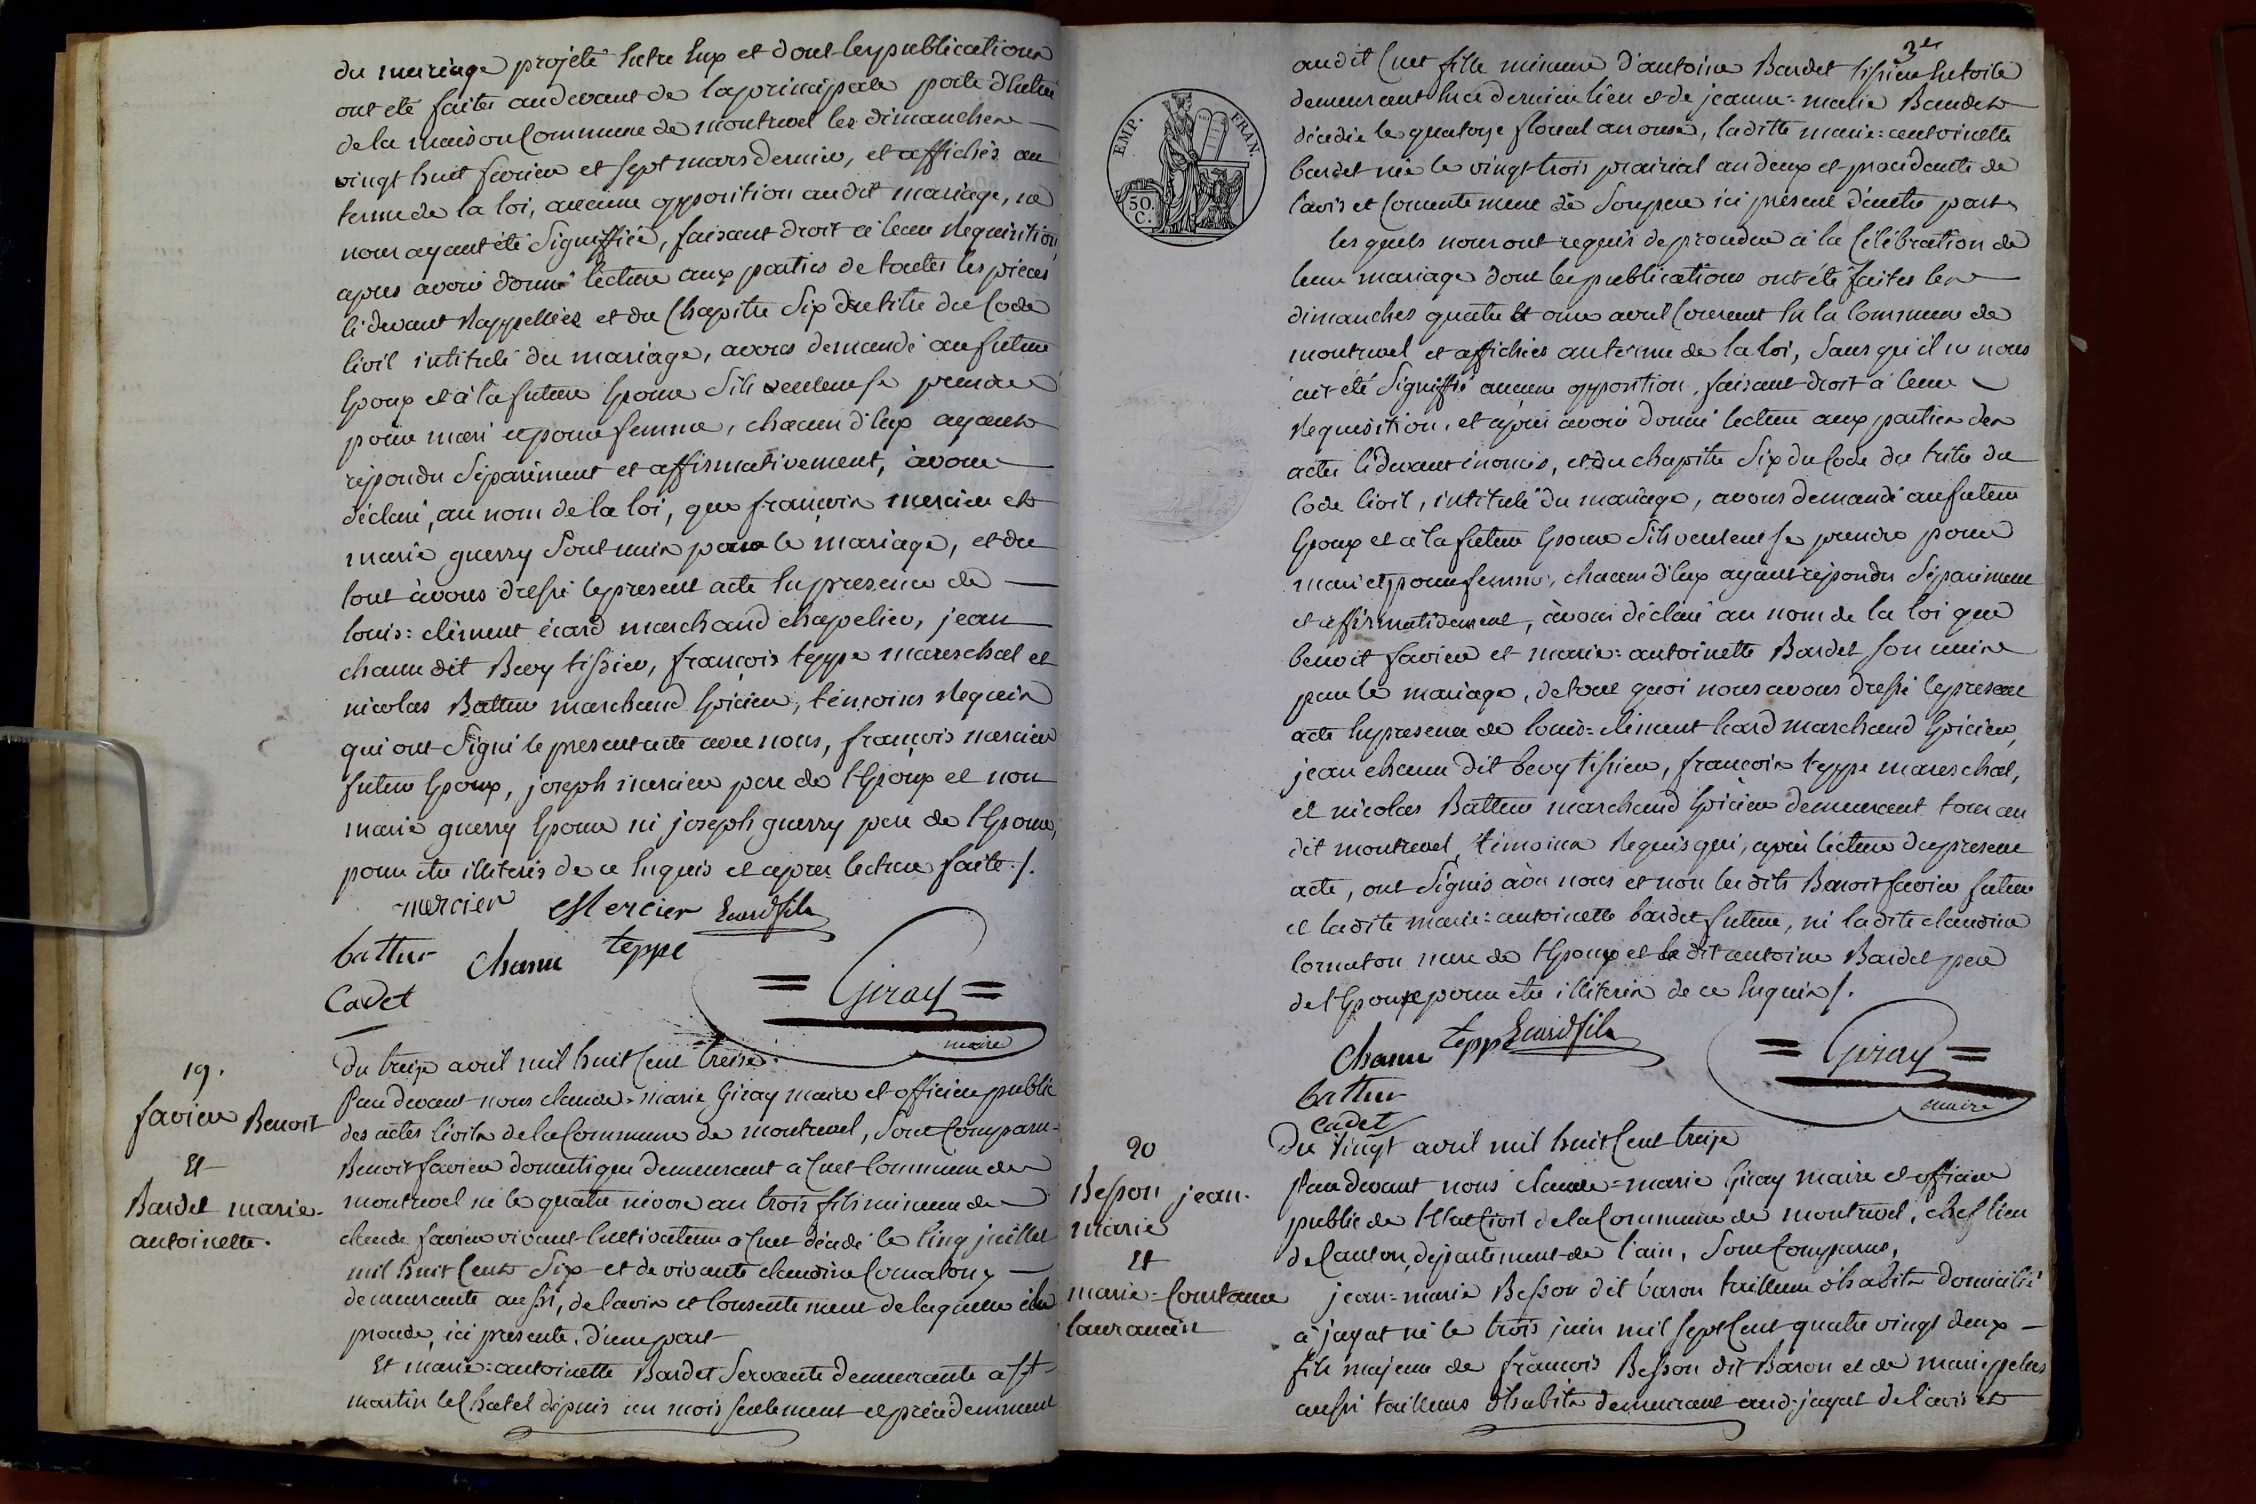 du mariage projété Entre Eux et dont les publications
ont été faites au devant de la principale porte d'Entrée
de la maison Commune de montrevel les dimanches
vingt huit fevrier et sept mars dernier, et affichés au
terme de la loi, aucune opposition audit mariage, ne
nous ayant été Signiffiée, faisant droit à leur Requisition,
apres avoir donné lecture aux parties de toutes les pièces
Ci devant Rappellées et du Chapitre Six du titre du Code
Civil intitulé du mariage, avons demandé au futur
Epoux et à la future Epouse S'ils veulent se prendre
pour mari et pour femme, chacun d'Eux ayant
répondu Séparément et affirmativement, avons
déclaré, au nom de la loi, que françois mercier et
marie guerry Sont unis par le mariage, et du
tout avons dressé le present acte En presence de
louis=clément écard marchand chapelier, jean
chanu dit Bevy tissier, françois teppe mareschal et
nicolas Battur marchand Epicier, témoins Requis
qui ont Signé le present acte avec nous, françois mercier
futur Epoux, joseph mercier pere de l'Epoux et non
marie guerry Epouse ni joseph guerry pere de l'Epouse,
pour être illiterés de ce Enquis et apres lecture faite./.
mercier Mercier Ecard fils
battur chanu teppe
Cadet
= Giray =
maire
19.
favier Benoit
Et
Bardet marie-
antoinette.
Du treize avril mil huit Cent treize.
Par devant nous claude=marie Giray maire et officier public
des actes Civils de la Commune de montrevel, Sont Comparu-
Benoit favier domestique demeurant à Cuet Commune de
montrevel né le quatre nivose an trois fils mineur de
claude favier vivant Cultivateur a Cuet décédé le Cinq juillet
mil huit Cents Six et de vivante claudine Cornaton y
demeurante aussi, de l'avis et Consentement de laquelle il
procede, ici presente. d'une part
Et marie=antoinette Bardet Servante demeurante a St
martin le Chatel depuis un mois seulement et précédemment
3e
audit Cuet fille mineure d'antoine Bardet tissier En toile
demeurant En ce dernier lieu et de jeanne=marie Baudet
décédée le quatorze floreal an onze, laditte marie=antoinette
bardet née le vingt-trois prairial an deux et procédante de
l'avis et Consentement de Son pere ici présent d'autre part
les quels nous ont requis de procéder à la Célébration de
leur mariage dont les publications ont été faites les
dimanches quatre Et onze avril Courant En la Commune de
montrevel et affichées au terme de la loi, Sans qu'il ne nous
ait été Signiffié aucune opposition, faisant droit à leur
Requisition, et après avoir donné lecture aux parties des
actes Cidevant énoncés, et du chapitre Six du Code du titre du
Code Civil, intitulé du mariage, avons demandé au futur
Epoux et à la future Epouse S'ils veulent se prendre pour
mari et pour femme, chacun d'Eux ayant répondu Séparément
et affirmativement, avons déclaré au nom de la loi que
benoit favier et marie=antoinette Bardet Sont unis
par le mariage, de tout quoi nous avons dressé le present
acte En presence de louis=clément Ecard marchand Epicier,
jean chanu dit bevy tissier, françois teppe mareschal,
et nicolas Battur marchand Epicier demeurant tous au
dit montrevel, témoins Requis qui, après lecture du present
acte, ont Signés avec nous et non lesdits Benoit favier futur
et ladite marie=antoinette bardet future, ni ladite claudine
Cornaton mere de l'Epoux et le dit antoine Bardet pere
de l'Epouse pour être illiterés de ce Enquis /.
chanu teppe Ecard fils
battur
cadet
= Giray =
maire
20
Besson jean-
marie
Et
marie=Constance
laurancin
Du Vingt avril mil huit Cent treize
Par devant nous claude=marie Giray maire et officier
public de l'Etat Civil de la Commune de montrevel, chef lieu
de Canton, département de l'ain, Sont Comparus,
jean=marie Besson dit baron tailleur d'habits domicilié
à jayat né le trois juin mil sept Cent quatre vingt deux
fils majeur de françois Besson dit Baron et de marie
aussi tailleurs d'habits demeurant aud. jayat de l'avis et
EMP. FRAN.
50.
C.